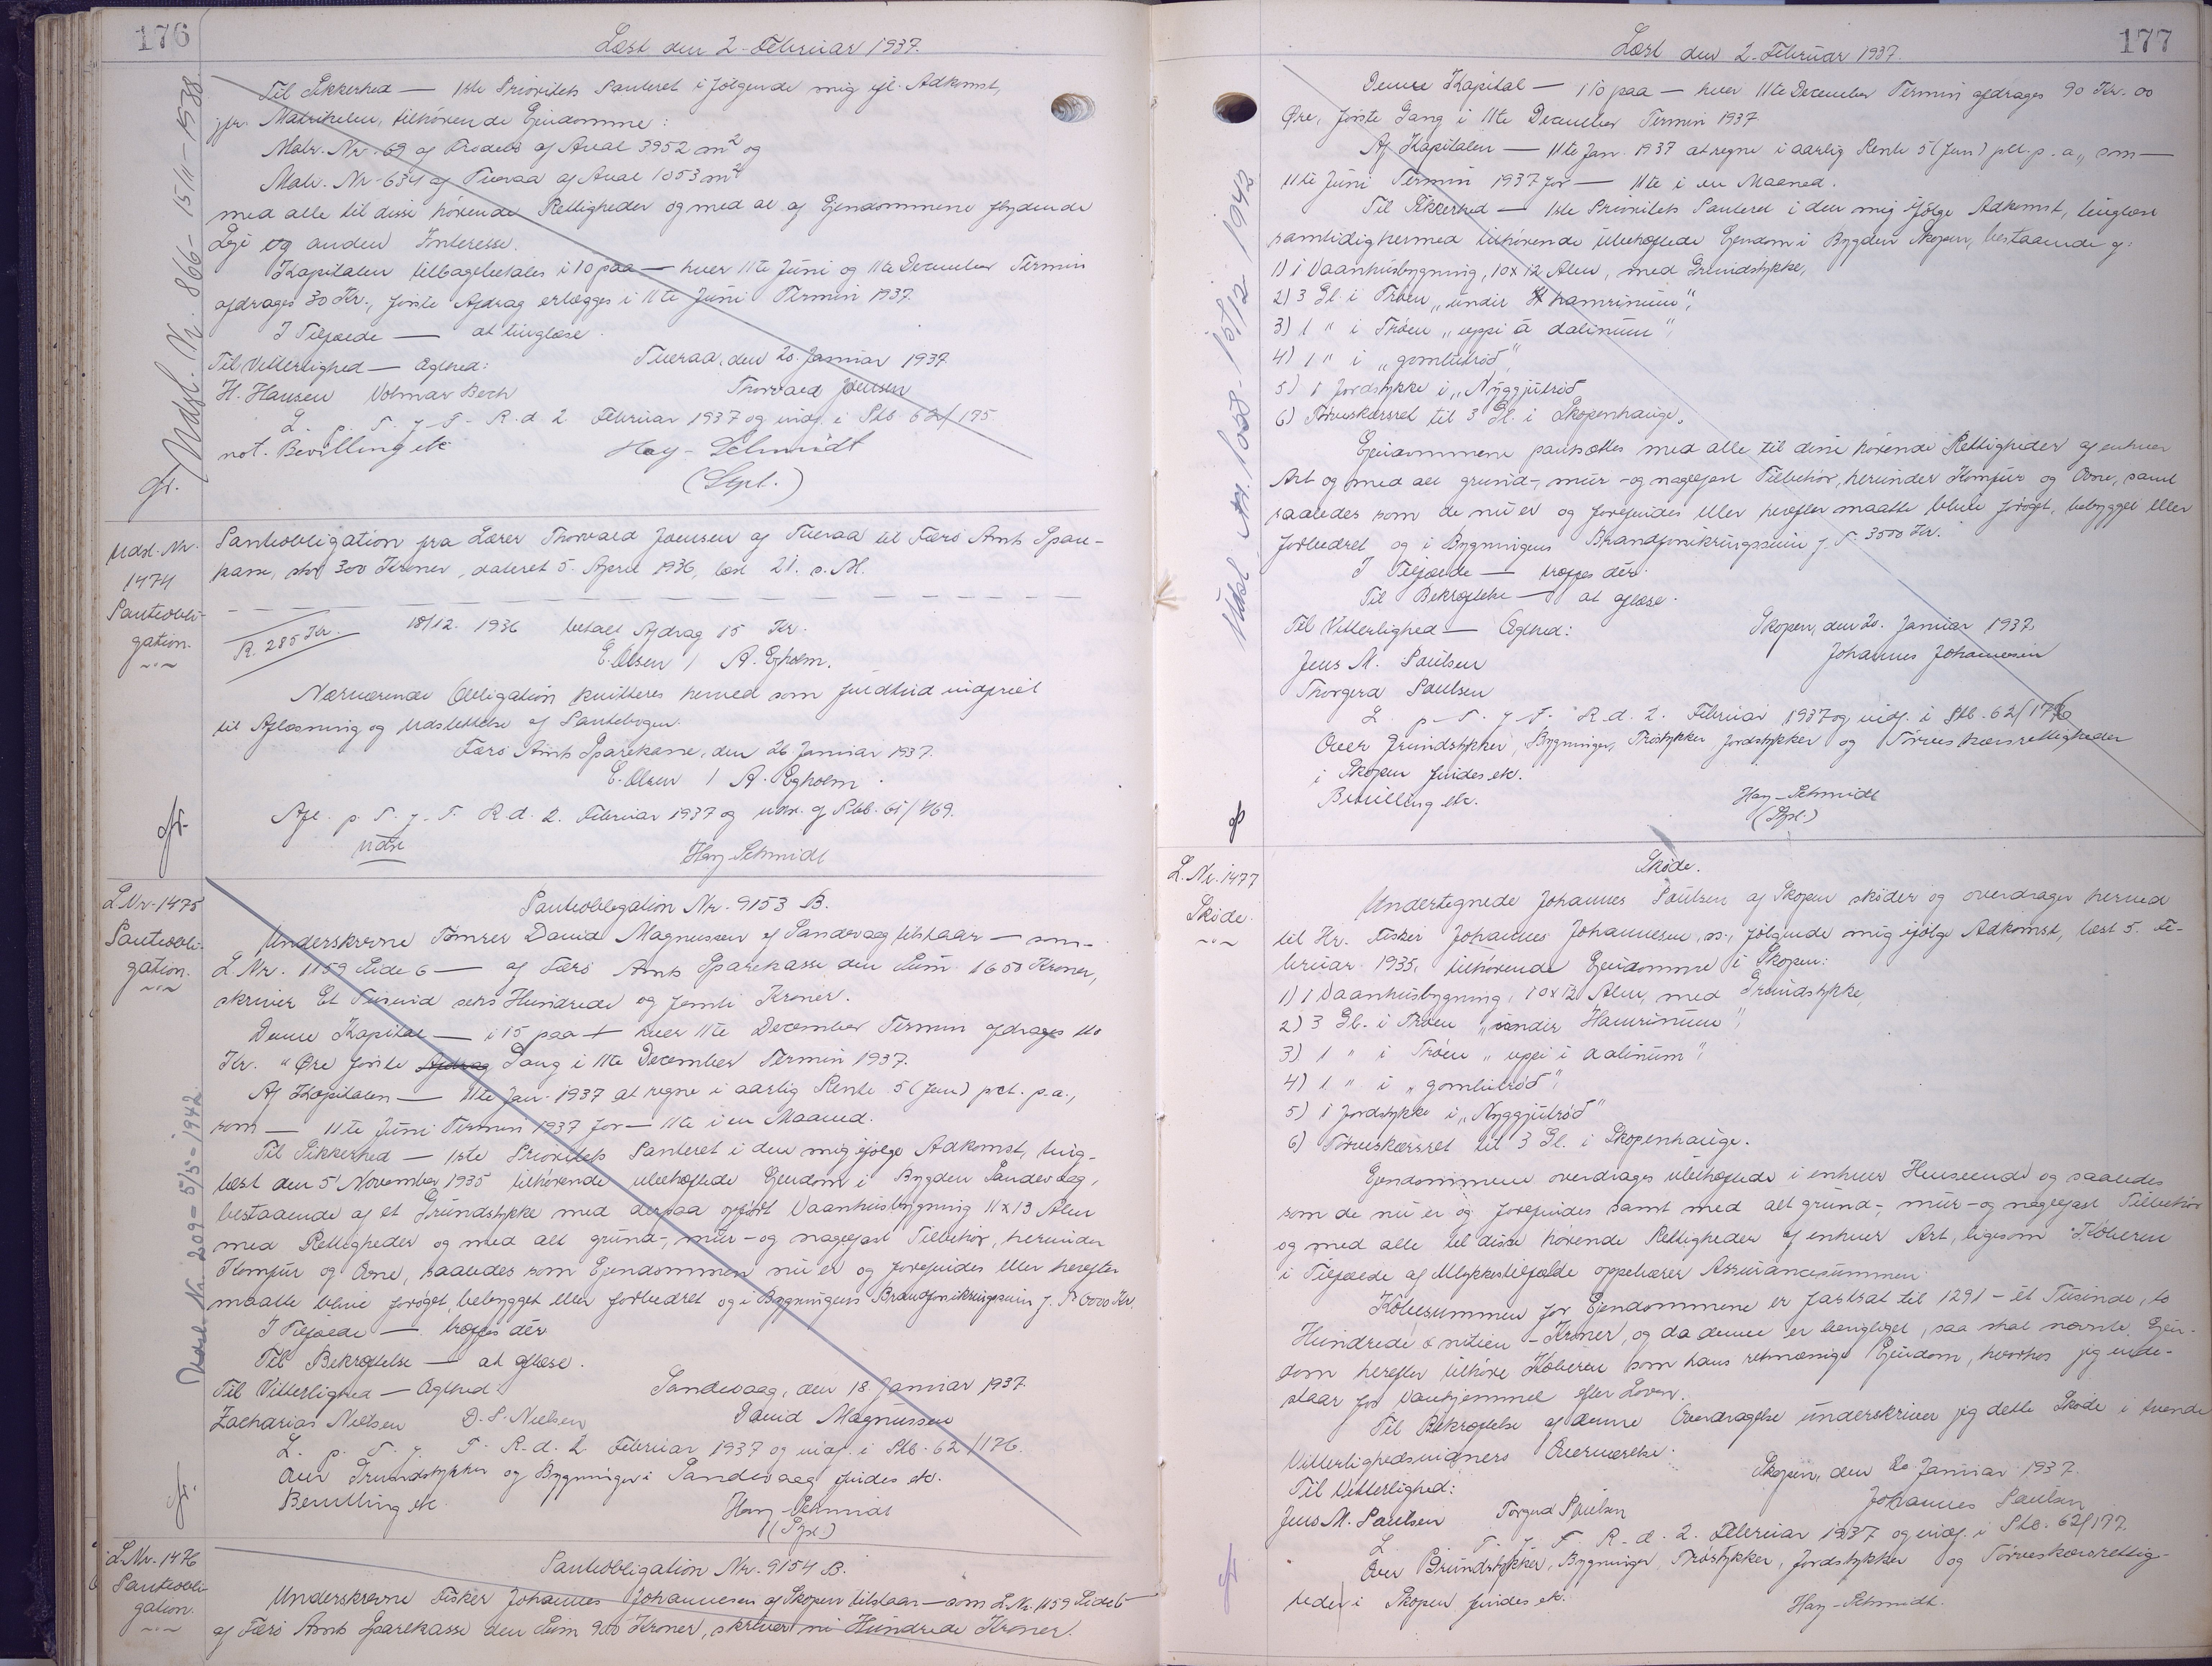 176
Læst den 2. Februar 1937.
Til Sikkerhed — 1ste Prioritets Panteret i følgende mig ifl. Adkomst,
jfr. Matrikelen, tilhørende Ejendomme:
Matr. Nr. 69 af af Areal 3952 m² og
Matr. Nr. 634 af Tveraa af Areal 1053 m²
med alle til disse hørende Rettigheder og med al af Ejendommene flydende
Leje og anden Interesse.
Kapitalen tilbagebetales i 10 paa — hver 11te Juni og 11te December Termin
afdrages 30 Kr., første Afdrag erlægges i 11te Juni Termin 1937.
I Tilfælde — at tinglæse.
Til Vitterlighed — Egthed: Tveraa, den 20. Januar 1937.
H. Hansen Volmar Bech Thorvald Joensen
L. p. T. f. F. R. d. 2. Februar 1937 og indf. i Ptb. 62/175
not. Bevilling etc Hay-Schmidt
(Spl.)
gr.
Udsl. Nr. 866 - 15/11 - 1938
Udsl. Nr.
1474
Panteobli-
gation.
Panteobligation fra Lærer Thorvald Joensen af Tveraa til Færø Amts Spare-
kasse, stor 300 Kroner, dateret 5. April 1936, læst 21. s. M.
R. 285 Kr. 18/12. 1936 betalt Afdrag 15 Kr.
E. Olsen / A. Egholm.
Nærværende Obligation kvitteres herved som fuldtud indfriet
til Aflæsning og Udslettelse af Pantebogen.
Færø Amts Sparekasse, den 26 Januar 1937.
E. Olsen / A. Egholm.
Afl. p. T. f. F. R. d. 2. Februar 1937 og udsl. af Ptb. 61/469.
Hay-Schmidt
gr.
L. Nr. 1475
Panteobli-
gation.
Panteobligation Nr. 9153 B.
Underskrevne Tømrer David Magnussen af Sandevaag tilstaar — som —
L. Nr. 1159 Side 6 — af Færø Amts Sparekasse den Sum 1650 Kroner,
skriver Et Tusind seks Hundrede og femti Kroner.
Denne Kapital — i 15 paa — hver 11te December Termin afdrages 110
Kr. " Øre første Afdrag Gang i 11te December Termin 1937.
Af Kapitalen — 11te Jan. 1937 at regne i aarlig Rente 5 (fem) pct. p. a.,
som — 11te Juni Termin 1937 for — 11te i en Maaned.
Til Sikkerhed — 1ste Prioritets Panteret i den mig ifølge Adkomst, ting-
læst den 5 November 1935 tilhørende ubehæftede Ejendom i Bygden Sandevaag,
bestaaende af et Grundstykke med derpaa opført Vaanhusbygning 11 x 13 Alen
med Rettigheder og med alt grund-, mur- og nagelfast Tilbehør, herunder
Komfur og Ovne, saaledes som Ejendommen nu er og forefindes eller herefter
maatte blive forøget, bebygget eller forbedret og i Bygningens Brandforsikringssum f. T. 6000 Kr.
I Tilfælde — træffes dér.
Til Bekræftelse — at aflæse.
Til Vitterlighed — Egthed: Sandevaag, den 18. Januar 1937.
Zacharias Nielsen D. S. Nielsen David Magnussen
L. p. T. f. F. R. d. 2. Februar 1937 og indf. i Ptb. 62/176.
Over Grundstykker og Bygninger i Sandevaag findes etc.
Bevilling etc. Hay-Schmidt
(Spl.)
gr.
Udsl. Nr. 209 - 5/5 - 1942.
L. Nr. 1476
Panteobli-
gation.
Panteobligation Nr. 9154 B.
Underskrevne Fisker Johannes Johannesen af Skopen tilstaar — som L. Nr. 1159 Side 6 —
af Færø Amts Sparekasse den Sum 900 Kroner, skriver ni Hundrede Kroner.
177
Læst den 2. Februar 1937.
Denne Kapital — i 10 paa — hver 11te December Termin afdrages 90 Kr. 00
Øre, første Gang i 11te December Termin 1937
Af Kapitalen — 11te Jan. 1937 at regne i aarlig Rente 5 (fem) pct. p. a., som —
11te Juni Termin 1937 for — 11te i en Maaned.
Til Sikkerhed — 1ste Prioritets Panteret i den mig ifølge Adkomst, tinglæst
samtidig hermed tilhørende ubehæftede Ejendom i Bygden Skopen, bestaaende af:
1) 1 Vaanhusbygning, 10 x 12 Alen, med Grundstykke,
2) 3 Gl. i Trøen „undir hamrinum",
3) 1 " i Trøen „uppi á dalinum"
4) 1 " i „gomlutrøð"
5) 1 Jordstykke i „Nyggjutrøð
6) Tørveskærsret til 3 Gl. i Skopenhauge.
Ejendommene pantsættes med alle til disse hørende Rettigheder af enhver
Art og med alt grund-, mur- og nagelfast Tilbehør, herunder Komfur og Ovne, samt
saaledes som de nu er og forefindes eller herefter maatte blive forøget, bebygget eller
forbedret og i Bygningens Brandforsikringssum f. T. 3500 Kr.
I Tilfælde — træffes dér.
Til Bekræftelse — at aflæse.
Til Vitterlighed — Egthed: Skopen, den 20. Januar 1937.
Jens M. Poulsen Johannes Johannesen
Thorgerd Poulsen
L. p. T. f. F. R. d. 2. Februar 1937 og indf. i Ptb. 62/176
Over Grundstykker, Bygninger, Trøstykker, Jordstykker og Tørveskærsrettigheder
i Skopen findes etc.
Bevilling etc. Hay-Schmidt
(Spl.)
Udsl. Nr. 1058 - 15/12 1942
L. Nr. 1477
Skøde.
Skøde.
Undertegnede Johannes Poulsen af Skopen skøder og overdrager herved
til Hr. Fisker Johannes Johannesen, ss., følgende mig ifølge Adkomst, læst 5. Fe-
bruar 1935, tilhørende Ejendomme i Skopen:
1) 1 Vaanhusbygning, 10 x 12 Alen, med Grundstykke,
2) 3 Gl. i Trøen „undir Hamrinum",
3) 1 " i Trøen „uppi i dalinum",
4) 1 " i „gomlutrøð",
5) 1 Jordstykke i „Nyggjutrøð"
6) Tørveskærsret til 3 Gl. i Skopenhauge.
Ejendommene overdrages ubehæftede i enhver Henseende og saaledes
som de nu er og forefindes samt med alt grund-, mur- og nagelfast Tilbehør
og med alle til disse hørende Rettigheder af enhver Art, ligesom Køberen
i Tilfælde af Ulykkestilfælde oppebærer Assurancesummen.
Købesummen for Ejendommene er fastsat til 1291 - ét Tusinde, to
Hundrede & nitien - Kroner, og da denne er berigtiget, saa skal nævnte Ejen-
dom herefter tilhøre Køberen som hans retmæssige Ejendom, hvorhos jeg inde-
staar for Vanhjemmel efter Loven.
Til Bekræftelse af denne Overdragelse underskriver jeg dette Skøde i tvende
Vitterlighedsvidners Overværelse.
Skopen, den 20 Januar 1937.
Til Vitterlighed: Johannes Poulsen
Jens M. Poulsen Torgerd Poulsen
L. T. f. F. R. d. 2. Februar 1937 og indf. i Ptb. 62/177.
Over Grundstykker, Bygninger, Trøstykker, Jordstykker og Tørveskærsrettig-
heder i Skopen findes etc. Hay-Schmidt.